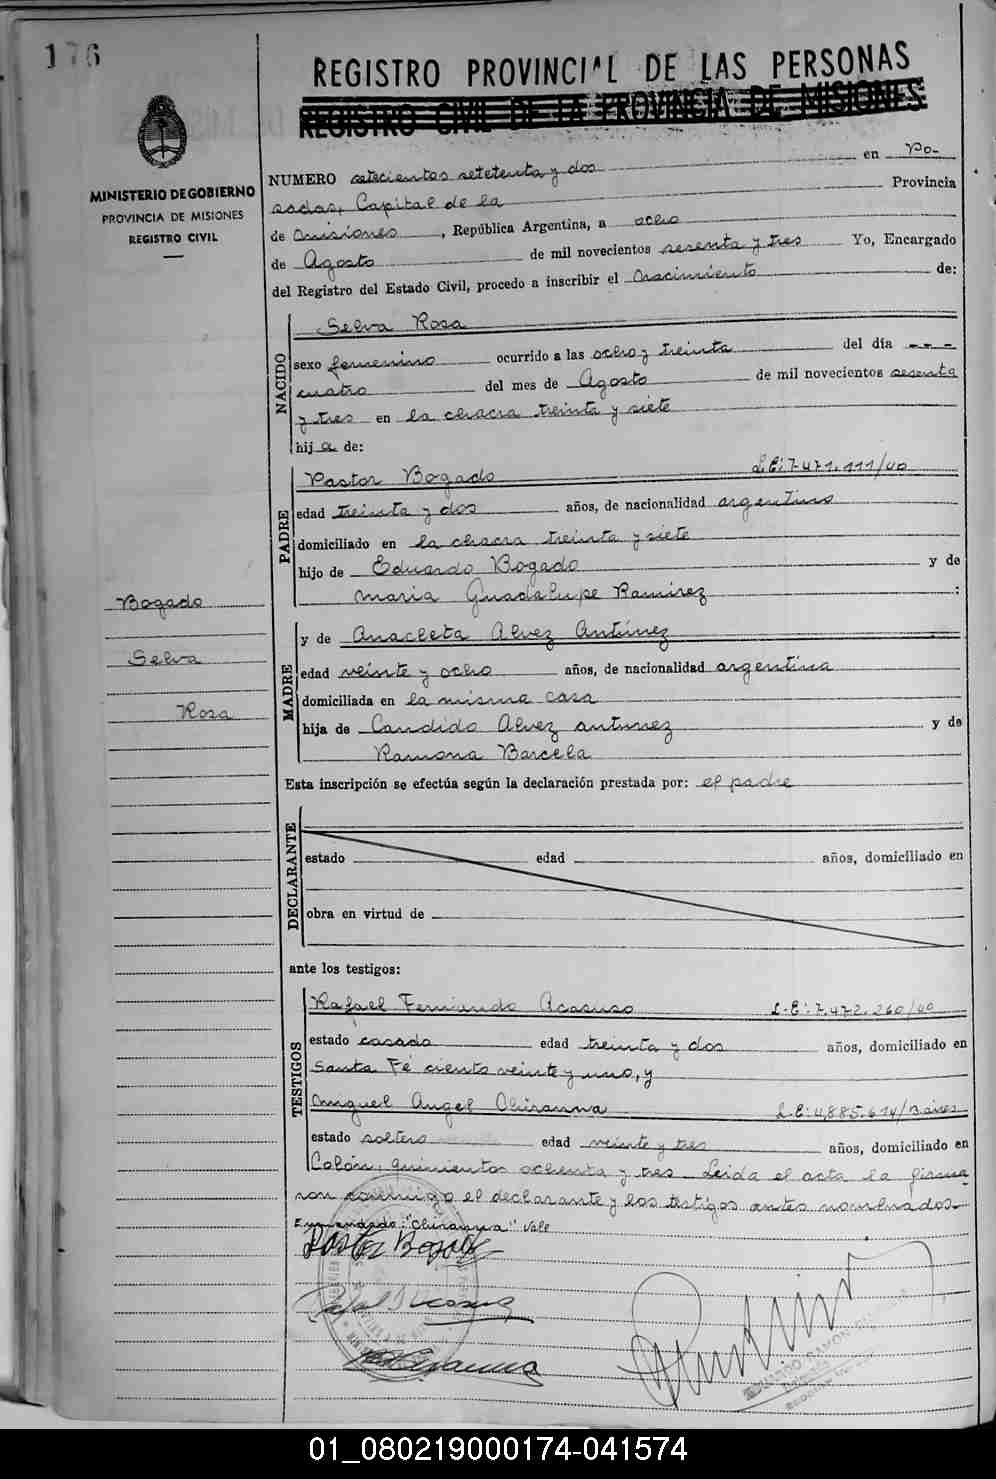 176
REGISTRO PROVINCIAL DE LAS PERSONAS
REGISTRO CIVIL DE LA PROVINCIA DE MISIONES
MINISTERIO DE GOBIERNO
PROVINCIA DE MISIONES
REGISTRO CIVIL
NUMERO setecientos setetenta y dos en Po-
sadas, Capital de la Provincia
de Misiones, República Argentina, a ocho
de Agosto de mil novecientos sesenta y tres Yo, Encargado
del Registro del Estado Civil, procedo a inscribir el Nacimiento de:
NACIDO
Selva Rosa
sexo femenino ocurrido a las ocho y treinta del día ---
cuatro del mes de Agosto de mil novecientos sesenta
y tres en la chacra treinta y siete
hija de:
PADRE
Pastor Bogado L.E: 7.471.111/40
edad treinta y dos años, de nacionalidad argentino
domiciliado en la chacra treinta y siete
hijo de Eduardo Bogado y de
Maria Guadalupe Ramirez :
Bogado
Selva
Rosa
MADRE
y de Anacleta Alvez Antúnez
edad veinte y ocho años, de nacionalidad argentina
domiciliada en la misma casa
hija de Candido Alvez Antunez y de
Ramona Barcela
Esta inscripción se efectúa según la declaración prestada por: el padre
DECLARANTE
estado edad años, domiciliado en
obra en virtud de
ante los testigos:
TESTIGOS
Rafael Fernando Acasuso L.E: 7.472.260/40
estado casado edad treinta y dos años, domiciliado en
Santa Fé ciento veinte y uno, y
Miguel Angel Chiranna L.E: 4.885.614/B.aires
estado soltero edad veinte y tres años, domiciliado en
Colón, quinientos ochenta y tres. Leida el acta la firma
ron conmigo el declarante y los testigos antes nombrados.
Enmendado: "Chiranna" Vale
Pastor Bogado
01_080219000174-041574